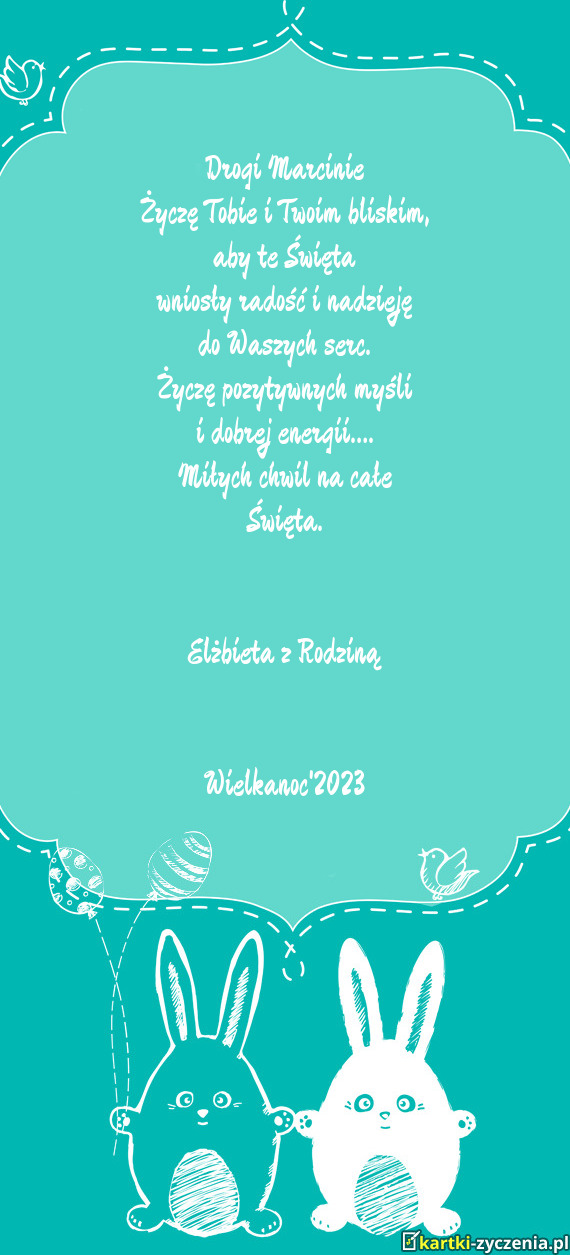 Drogi Marcinie
Życzę Tobie i Twoim bliskim,
aby te Święta
wniosły radość i nadzieję
do Waszych serc.
Życzę pozytywnych myśli
i dobrej energii....
Miłych chwil na całe
Święta.
Elżbieta z Rodziną
Wielkanoc'2023
kartki-zyczenia.pl